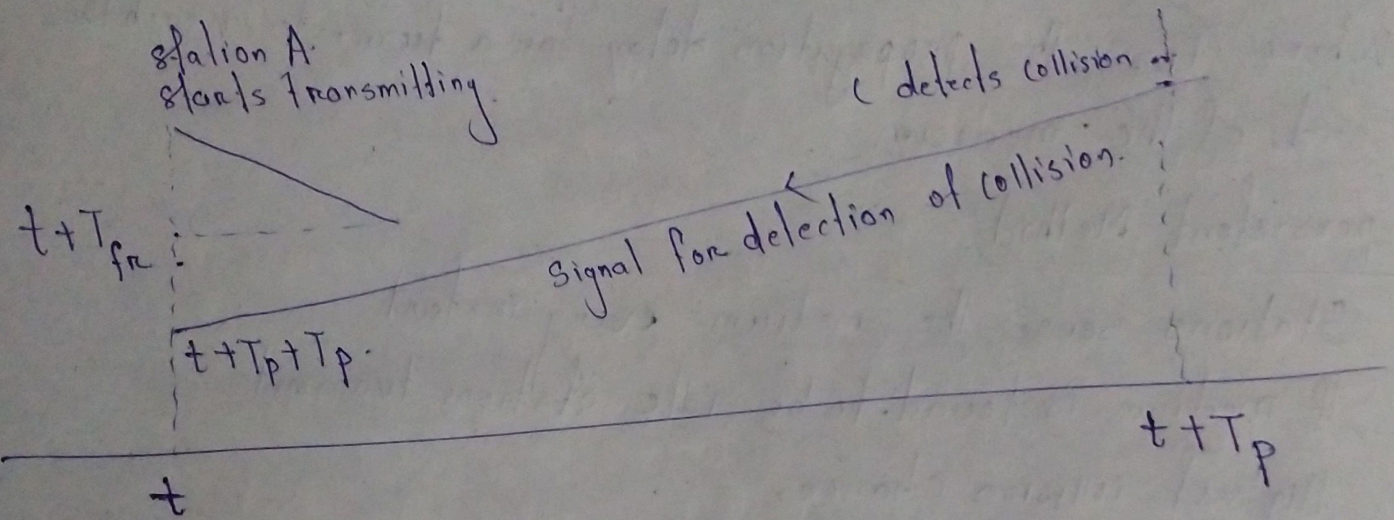 station A.
starts transmitting.
C detects collision
t + T_fr
signal for detection of collision.
t + Tp + Tp.
t + Tp
t